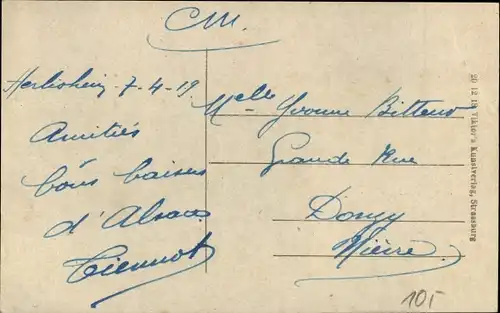 C.M.
Herlisheim 7-4-19
Amitiés
bons baisers
d'Alsace
Tiennot
Melle Yvonne Bittens
Grande Rue
Dorny
Nièvre
20 12 18 Viktor's Kunstverlag, Strassburg
105